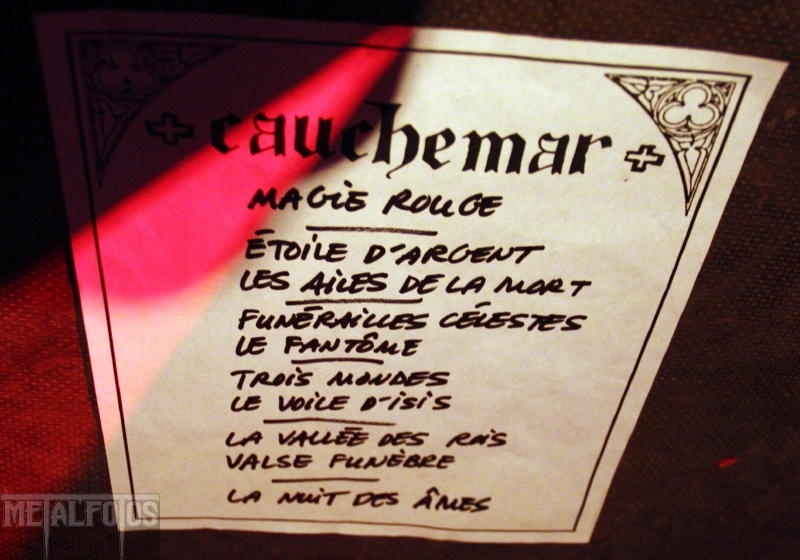 cauchemar
MAGIE ROUGE
ÉTOILE D'ARGENT
LES AILES DE LA MORT
FUNÉRAILLES CÉLESTES
LE FANTÔME
TROIS MONDES
LE VOILE D'ISIS
LA VALLÉE DES ROIS
VALSE FUNÈBRE
LA NUIT DES ÂMES
METALFOTOS